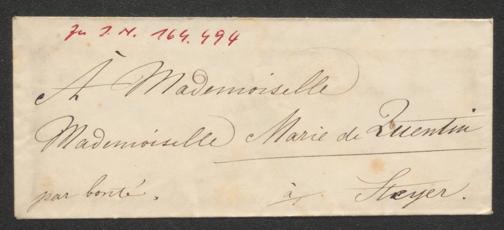 zu I. N. 164.494
À Mademoiselle
Mademoiselle Marie de Quentin
par bonté. à Steyer.